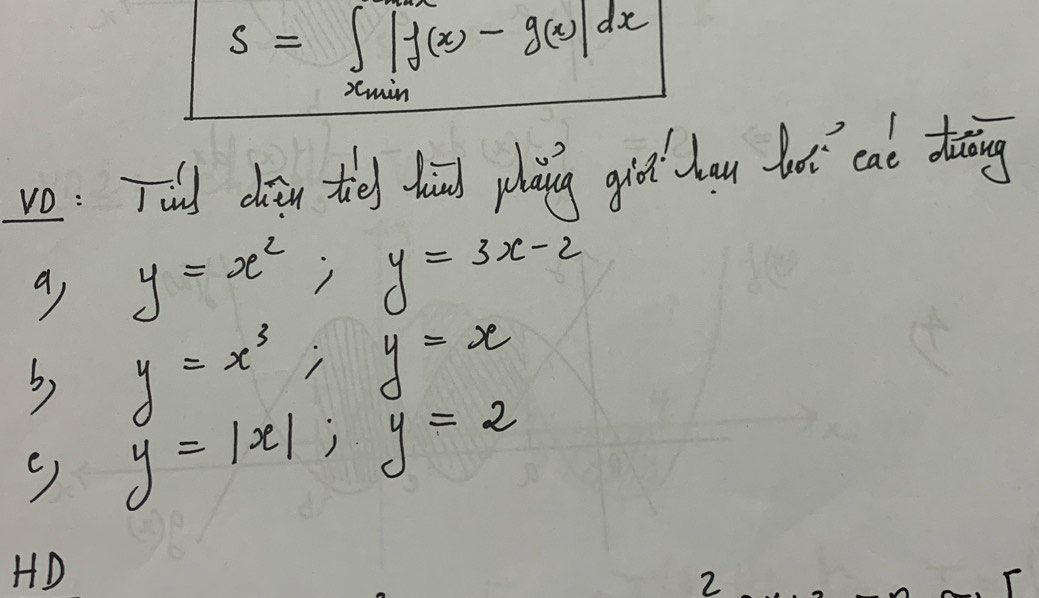 S = ∫ |f(x) - g(x)| dx
xmin
VD : Tính diện tích hình phẳng giới hạn bởi các đường
a, y = x² ; y = 3x - 2
b, y = x³ ; y = x
c, y = |x| ; y = 2
HD